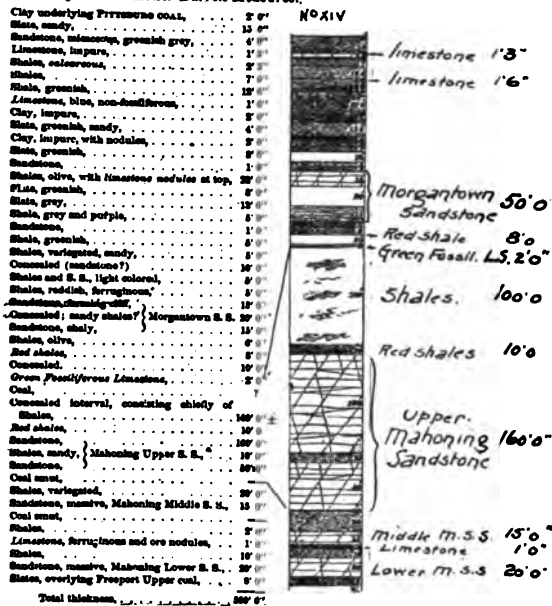 Clay underlying PITTSBURG COAL, 2' 0"
Slate, sandy, 15 0"
Sandstone, micaceous, greenish grey, 4' 0"
Limestone, impure, 1' 0"
Shales, calcareous, 2' 0"
Shales, 7' 0"
Shale, greenish, 12' 0"
Limestone, blue, non-fossiliferous, 1' 0"
Clay, impure, 2' 0"
Slate, greenish, sandy, 4' 0"
Clay, impure, with nodules, 2' 0"
Slate, greenish, 0"
Sandstone, 1' 0"
Shales, olive, with limestone nodules at top, 0"
greenish, 0"
Slate, grey, 0"
Shale, grey and purple, 5' 0"
Sandstone, 1' 0"
Shale, greenish, 5' 0"
Shales, variegated, sandy, 5' 0"
Concealed (sandstone?) 10' 0"
Shales and S. S., light colored, 5' 0"
Shales, reddish, ferruginous, 5' 0"
Sandstone, 15' 0"
Concealed; sandy shales? } Morgantown S. S. 20' 0"
Sandstone, shaly, 15' 0"
Shales, olive, 0"
Red shales, 0"
Concealed, 10' 0"
Green Fossiliferous Limestone, 2' 0"
Coal, ?
Concealed interval, consisting chiefly of
Shales, 100' 0" ±
Red shales, 10' 0"
Sandstone, 100' 0"
Shales, sandy, } Mahoning Upper S. S., 10' 0"
Sandstone, 50' 0"
Coal smut,
Shales, variegated, 20' 0"
Sandstone, massive, Mahoning Middle S. S., 15 0"
Coal smut,
Shales, 2' 0"
Limestone, ferruginous and ore nodules, 1' 0"
Shales, 10' 0"
Sandstone, massive, Mahoning Lower S. S., 20' 0"
Slates, overlying Freeport Upper coal, 0"
Total thickness, 0"
NO XIV
limestone 1'3"
limestone 1'6"
Morgantown
Sandstone 50'0"
Red Shale 8'0
Green Fossil. L.S. 2'0"
Shales. 100'0
Red shales 10'0
Upper-
Mahoning 160'0"
Sandstone
Middle M.S.S. 15'0"
Limestone 1'0"
Lower M.S.S 20'0